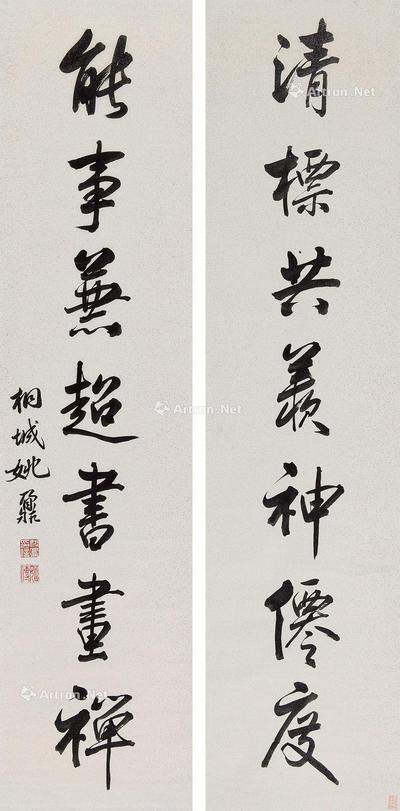 清標共羨神僊度
能事兼超書畫禪
桐城姚鼐
Artron.Net
Artron.Net
Artron.Net
Artron.Net
Artron.Net